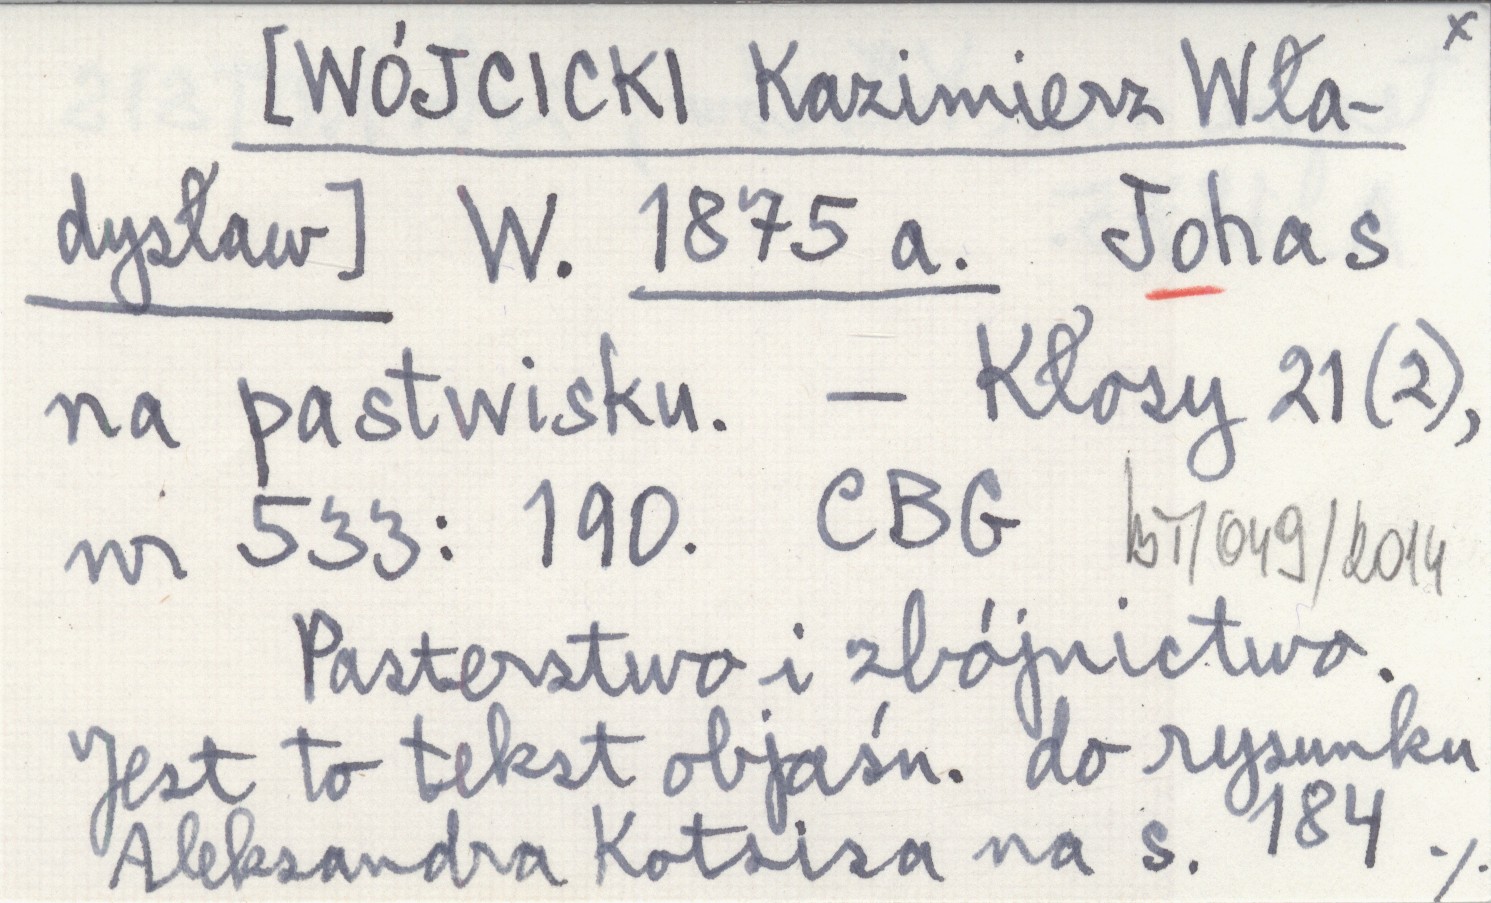 x
[WÓJCICKI Kazimierz Wła-
dysław] W. 1875 a. Johas
na pastwisku. – Kłosy 21 (2),
nr 533: 190. CBG BT/049/2014
Pasterstwo i zbójnictwo.
Jest to tekst objaśn. do rysunku
Aleksandra Kotsisa na s. 184 ./.